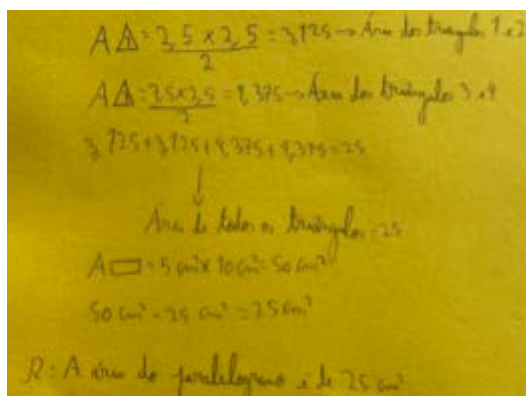 A△1 = 2,5 x 2,5 = 3,125 → Área dos triângulos 1 e 2
2
A△3 = 7,5 x 2,5 = 9,375 → Área dos triângulos 3 e 4
2
3,125 + 3,125 + 9,375 + 9,375 = 25
↓
Área de todos os triângulos = 25
A▭ = 5 cm² x 10 cm² = 50 cm²
50 cm² - 25 cm² = 25 cm²
R: A área do paralelogramo é de 25 cm²